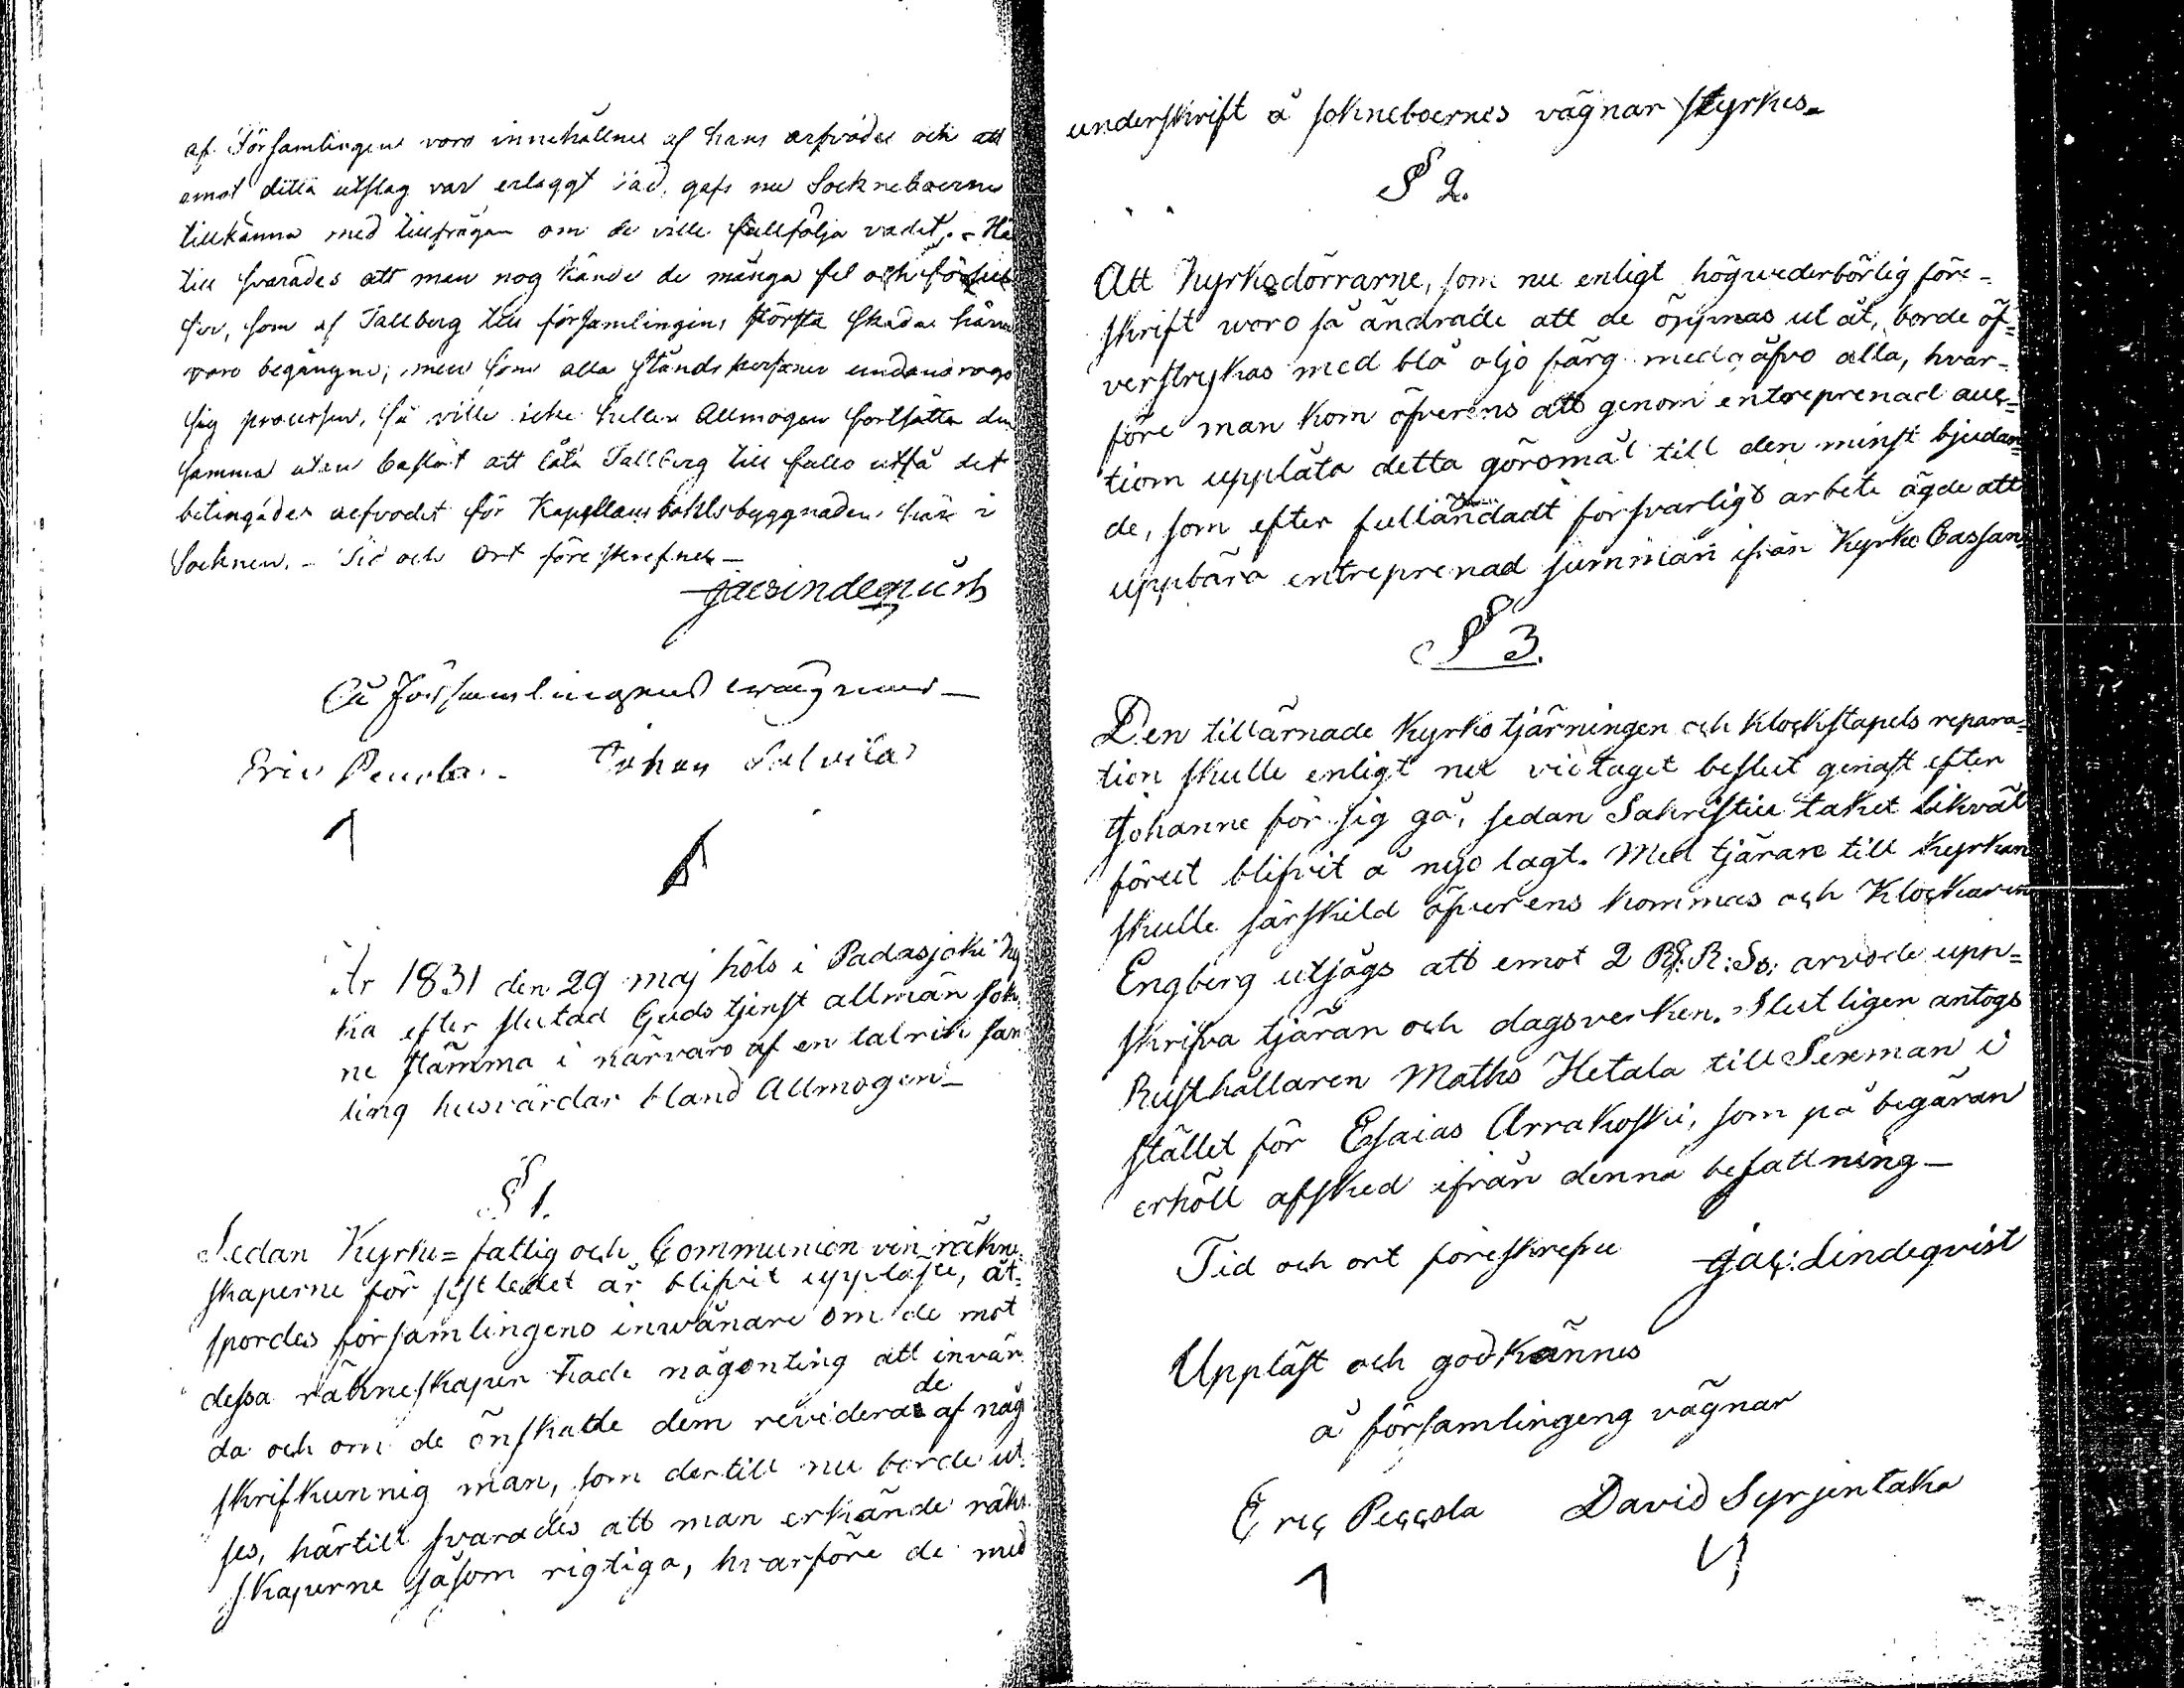 af Församlingens voro innehållne af hans arfvode och att
emot detta utslag var erlaggt vad, gafs nu Sockneboerne
tillkänna med tillfrågan om de ville fullfölja vadet. - Hä
till svarades att man nog kände de många fel och försum
ser, som af Tallberg till församlingens största skada härvid
voro begångne; men som alla Ståndspersoner undandrogo
sig processen, så ville icke heller Allmogen fortsätta den
samma utan beslöt att låta Tallberg till fullo utfå det
betingades arfvodet för Kapellans bohlsbyggnaden här i
Socknen. - Tid och Ort föreskrefne -
Jac Lindeqvist
Å Församlingens wägnar -
Eric Johan
År 1831 den 29 maj höls i Padasjoki Ky
ka efter slutad Guds tjenst allmän Sok
ne stämma i närvaro af en talrik sam
ling husvärdar bland Allmogen -
§ 1.
Sedan Kyrko= fattig och Communion vin räkne
skaperne för sistledet år blifvit uppläste, åt-
spordes församlingens inwånare om de mot
dessa räkneskaper hade någonting att invän
da och om de önskade dem reviderade af någ
skrifkunnig man, som dertill nu borde ut-
ses, härtill svarades att man erkände räkn
skaperne såsom rigtiga, hvarföre de med
underskrift å sokneboernes vägnar styrkes -
§ 2.
Att Kyrkodörrarne, som nu enligt högvederbörlig före-
skrift woro så ändrade att de öppnas ut åt, borde öf-
verstrykas med blå oljo färg medgåfvo alla, hvar-
före man kom öfverens att genom entreprenad auc-
tiom uppläta detta göromål till den minst bjudan-
de, som efter fulländadt försvarligt arbete ägde att
uppbära entreprenad summan ifrån Kyrko Cassan
§ 3.
Den tillärnade Kyrko tjärningen och Klockstapels repara-
tion skulle enligt nu vidtaget beslut genast efter
Johanne för sig gå, sedan Sakristie taket likväl
förut blifvit å nyo lagt. Med tjärare till Kyrkan
skulle särskild öfverens kommas och Klockaren
Engberg utsågs att emot 2 Rb: R: So: arvode upp-
skrifva tjäran och dagsverken. Slutligen antogs
Rusthållaren Maths Hetala till Sexman i
stället för Esaias Arrakoski, som på begäran
erhöll afsked ifrån denna befattning -
Tid och ort föreskrefne Jac: Lindeqvist
Uppläst och godkännes
å församlingeng vägnar
Eric Peccola David Syrjentaka